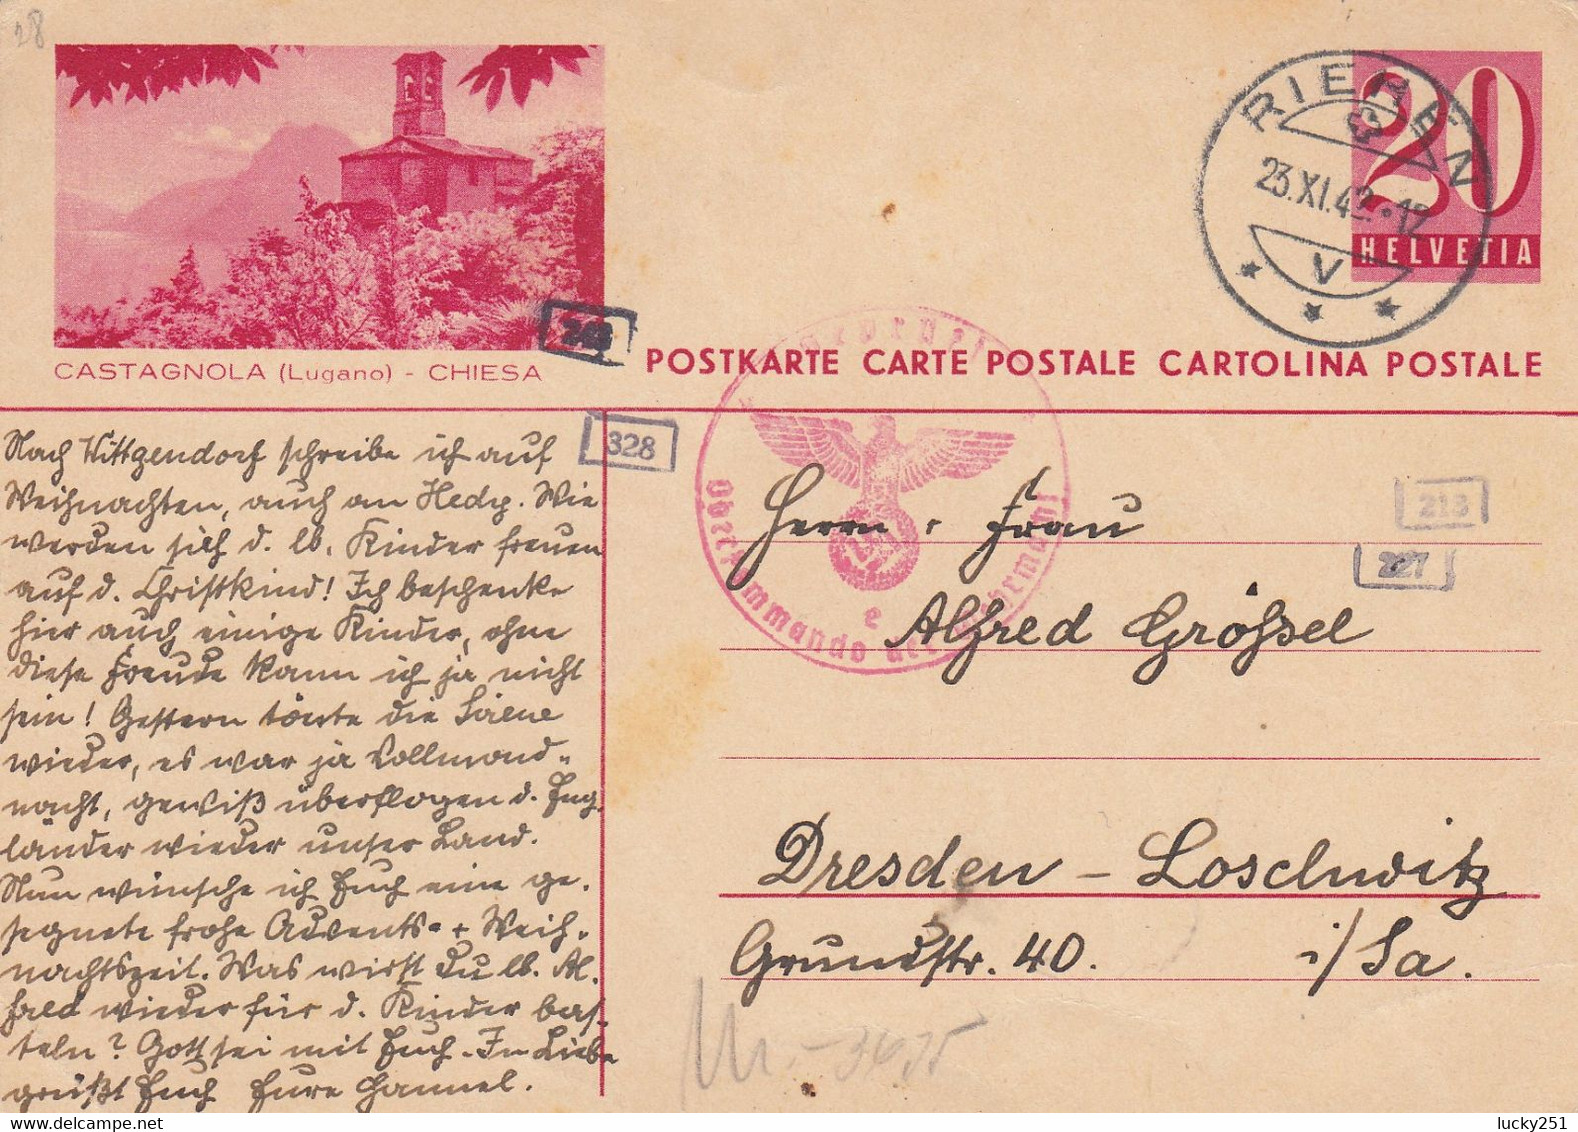 28
20
HELVETIA
RIEHEN
23.XI.42.-12
V
CASTAGNOLA (Lugano) - CHIESA
POSTKARTE CARTE POSTALE CARTOLINA POSTALE
328
213
227
Oberkommando der Wehrmacht
e
Nach Wittgendorf schreibe ich auf
Weihnachten, auch an Hedy. Wie
werden sich d. lb. Kinder freuen
auf d. Christkind! Ich beschenke
hier auch einige Kinder, ohne
diese Freude kann ich ja nicht
sein! Gestern tönte die Sirene
wieder, es war ja Vollmond-
nacht, gewiß überflogen d. Eng-
länder wieder unser Land.
Nun wünsche ich Euch eine ge-
segnete frohe Advents- + Weih-
nachtszeit. Was wirst Du lb. Al-
fred wieder für d. Kinder bas-
teln? Gott sei mit Euch. In Liebe
grüßt Euch Eure Hannel.
Herrn + Frau
Alfred Größel
Dresden - Loschwitz
Grundstr. 40. i/Sa.
lucky251